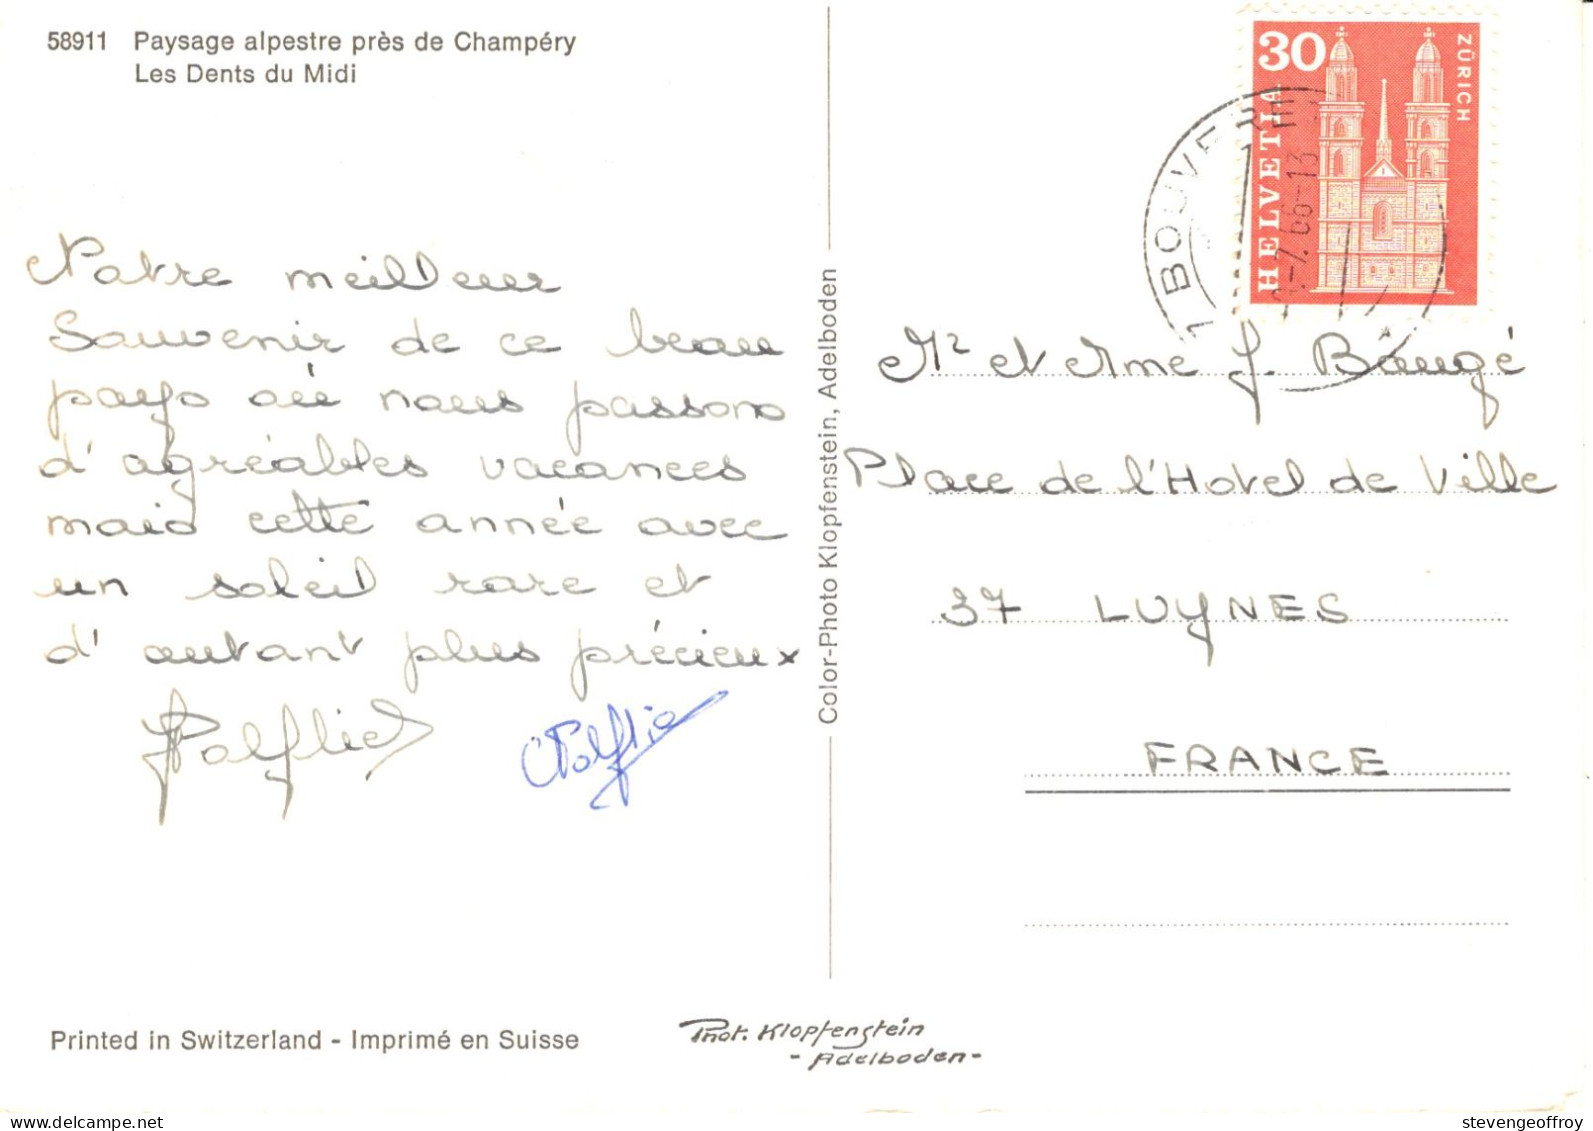 58911 Paysage alpestre près de Champéry
Les Dents du Midi
Notre meilleur
Souvenir de ce beau
pays où nous passons
d'agréables vacances
mais cette année avec
un soleil rare et
d'autant plus précieux
Printed in Switzerland - Imprimé en Suisse
Color-Photo Klopfenstein, Adelboden
Phot. Klopfenstein
- Adelboden -
30
HELVETIA
ZÜRICH
1 BOUVERET
-7.66-13
Mr et Mme J. Baugé
Place de l'Hotel de Ville
37 LUYNES
FRANCE
www.delcampe.net
stevengeoffroy